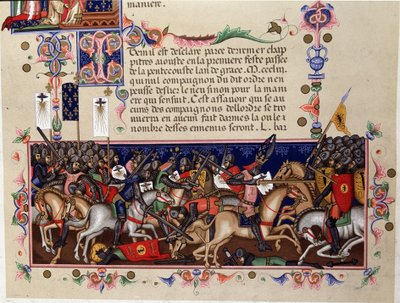 maniere.
Item il est desclare par ce dernier chap
pitres aiouste en la premiere feste passee
de la penthecouste lan de grace. M. ccc liii.
qui nul compaignon du dit ordre nen
peusse deslier le neu sinon pour la mani
ere qui sensuit. Cest assavoir que se au
cuns des compaignons de lordre se tro
uuerra en aucun fait darmes la ou le n
nombre desses ennemis seront. L. bar